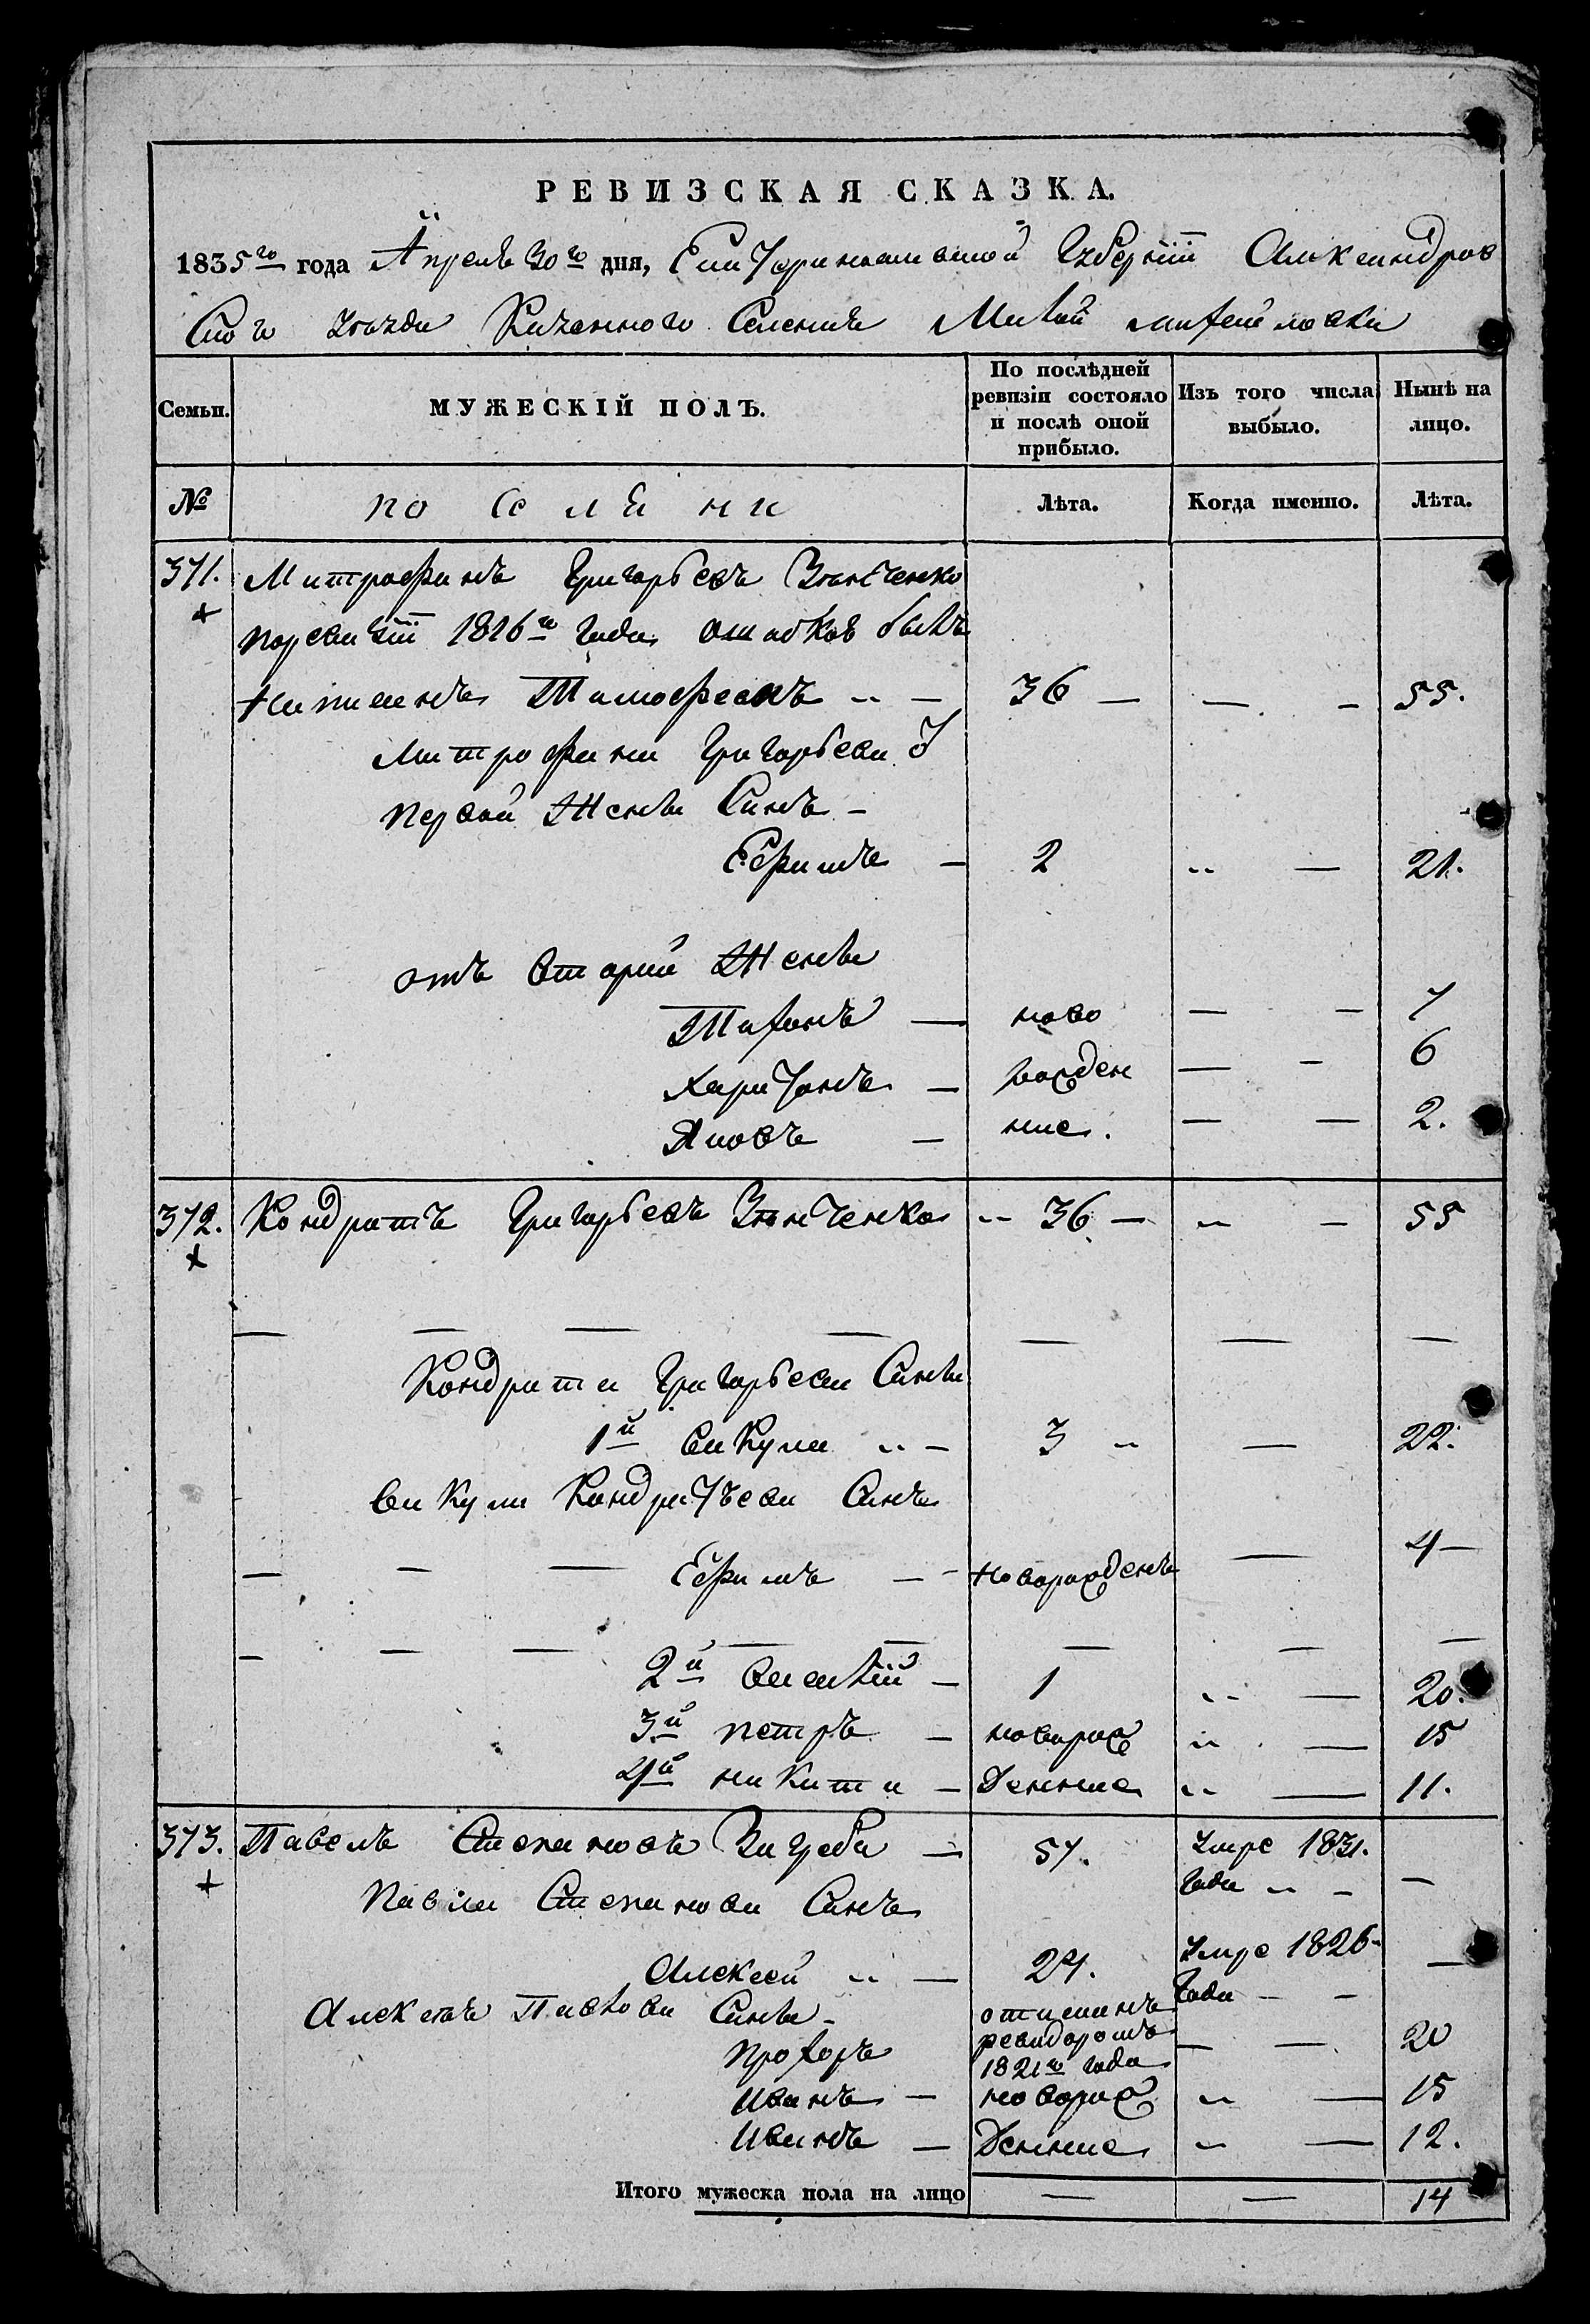 РЕВИЗСКАЯ СКАЗКА.
1835го года Апреля 30го дня, Екатеринославской Губернiи Александров
ского уезда Казенного Селения Малой михайловки
Семьи.
МУЖЕСКIЙ ПОЛЪ.
По послѣдней ревизiи состояло и послѣ оной прибыло.
Изъ того числа выбыло.
Нынѣ на лицо.
№
поселяни
Лѣта.
Когда именно.
Лѣта.
371. Митрофанъ Григорьевъ
поревизiи 1816го года ошибкою былъ
написанъ Тимофеемъ - - 36 - - - 55.
Митрофана Григорьева б
первой Жены Сынъ -
Ефимъ - 2 - - 21.
отъ второй Жены
Тихонъ - ново - - 7
Харитонъ - рожден - - 6
Яковъ - ние. - - 2.
372. Кондратъ Григорьевъ - 36 - - - 55
Кондрата Григорьева Сыны
1й Вакула - - 3 - - 22.
Вакулы Кондратьева Сынъ
Ефимъ - - Новорожденъ - 4 -
2й Василiй - 1 - - 20.
3й петръ - новорож - - 15
4й никита - Денние - - 11.
373. Павелъ Степановъ Загреба - 57. Умре 1831. -
года - -
Павла Степанова Сынъ
Умре 1826 -
Алексей - - 24. -
года - -
Алексея Павлова Сыны -
отысканъ
ревидоромъ
Прохоръ - - 20
1821го года
Иванъ - новорож - - 15
Иванъ - Денние - - 12.
Итого мужеска пола на лицо - - 14